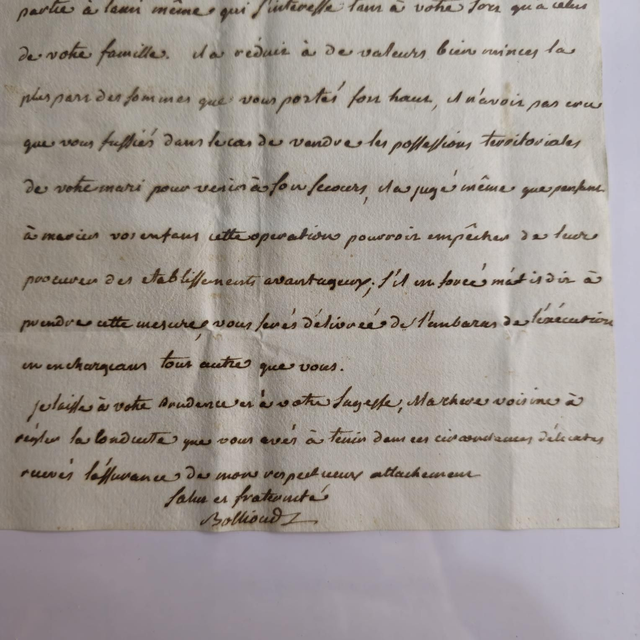 partie à lami même, qui s'interesse tant à votre sort qu'a celui
de votre famille. il a réduit à de valeurs bien minces la
plus part des sommes que vous portés fort haut, il n'avoit pas cru
que vous fussiés dans le cas de vendre les possessions territoriales
de votre mari pour venir à son secours, il a jugé même que pensant
à marier vos enfans cette operation pourroit empêcher de leur
procurer des etablissements avantageux; s'il en forcé m'at il dit à
prendre cette mesure, vous serés délivrée de l'embaras de l'éxécution
en en chargeant tout autre que vous.
je laisse à votre prudence et à votre sagesse, Ma chere voisine à
régler la conduite que vous avés à tenir dans ces circonstances délicates
recevés l'assurance de mon respectueux attachement
Salut et fraternité
Bollioud